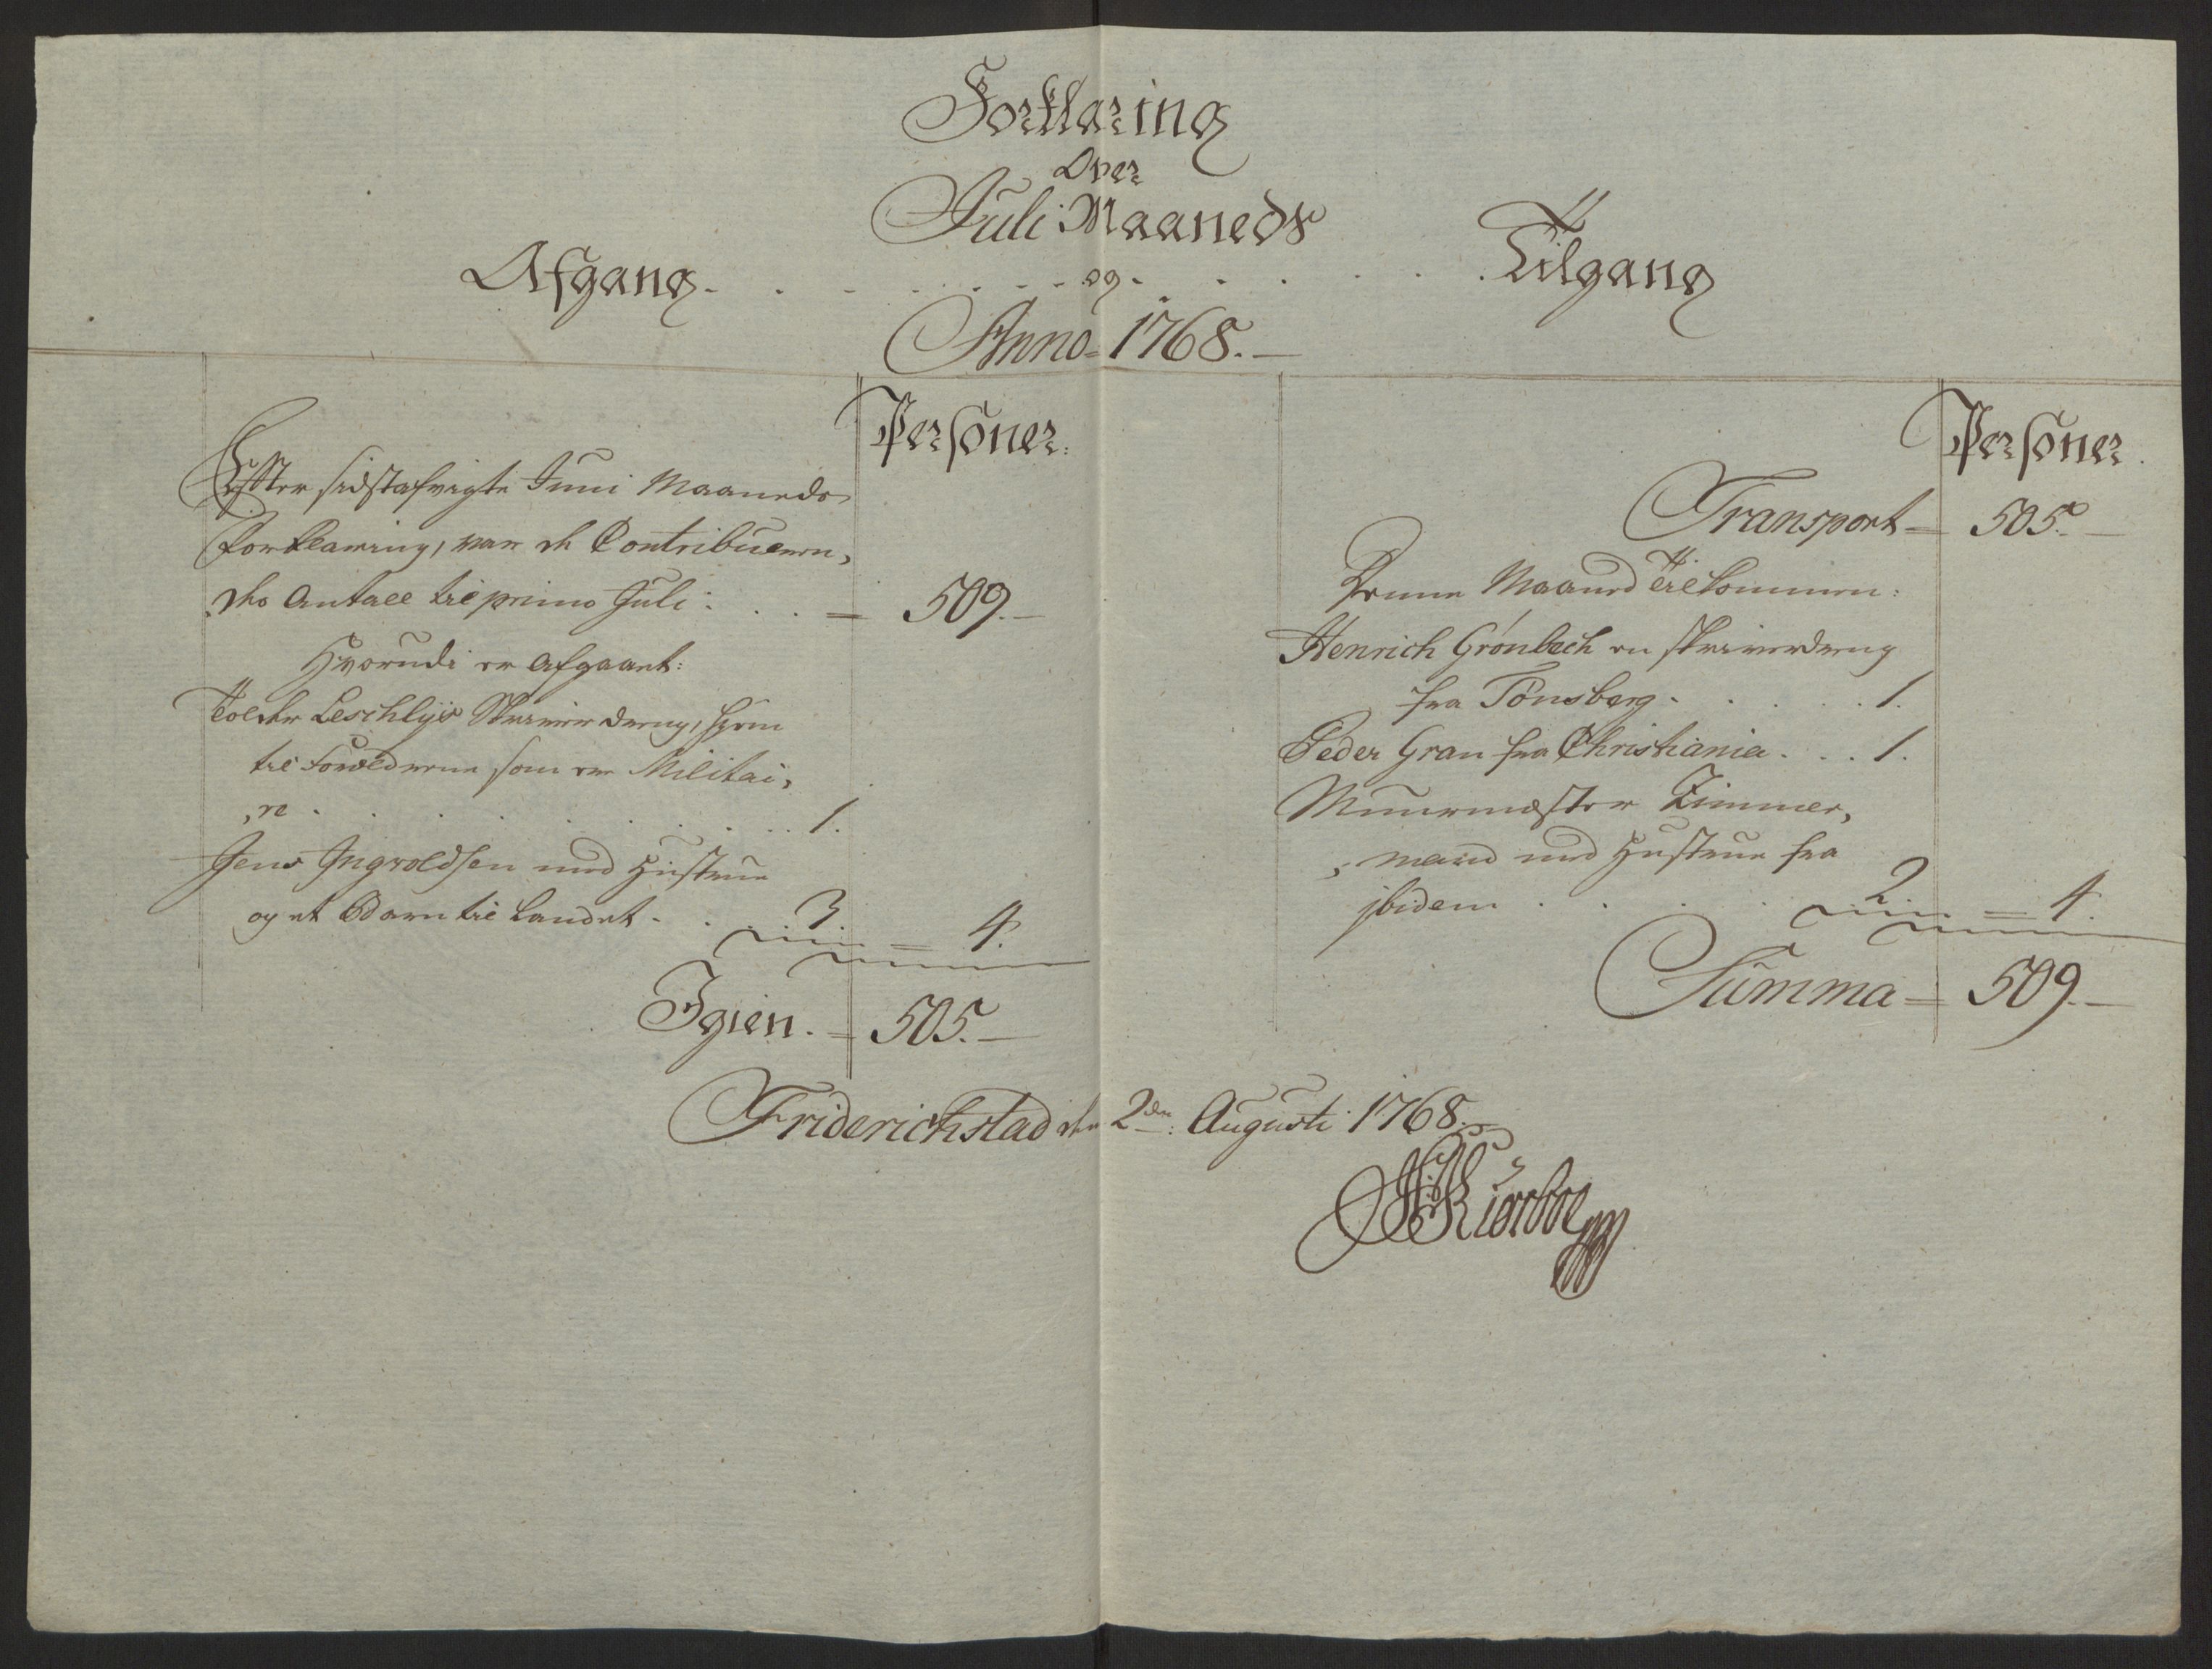 Forklaring
Over
Juli Maaneds
Afgang . . . . . . og . . . . . Tilgang
Anno 1768.
Personer.
Effter sidstafvigte Juni Maaneds
Forklaring, var de Contribueren,
des Antall til primo Juli . . . = 509.
Hvorudi er Afgaaet:
Tolder Leschlys Skriver dreng, hiem
til Forældrene som er Militai,
,re . . . . . . . . . 1.
Jens Ingvoldsen med Hustrue
og et Barn til Landet . . 3. = 4.
Igien. = 505.
Personer.
Transport = 505.
Denne Maaned tilkommen:
Henrich Grónbech en skriverdreng
fra Tönsberg . . . . . 1.
Peder Gran fra Christiania . . . 1.
Muurmester Zimmer,
,mand med Hustrue fra
jbidem . . . . 2. = 4.
Summa = 509.
Friderichstad den 2den: Augusti 1768.